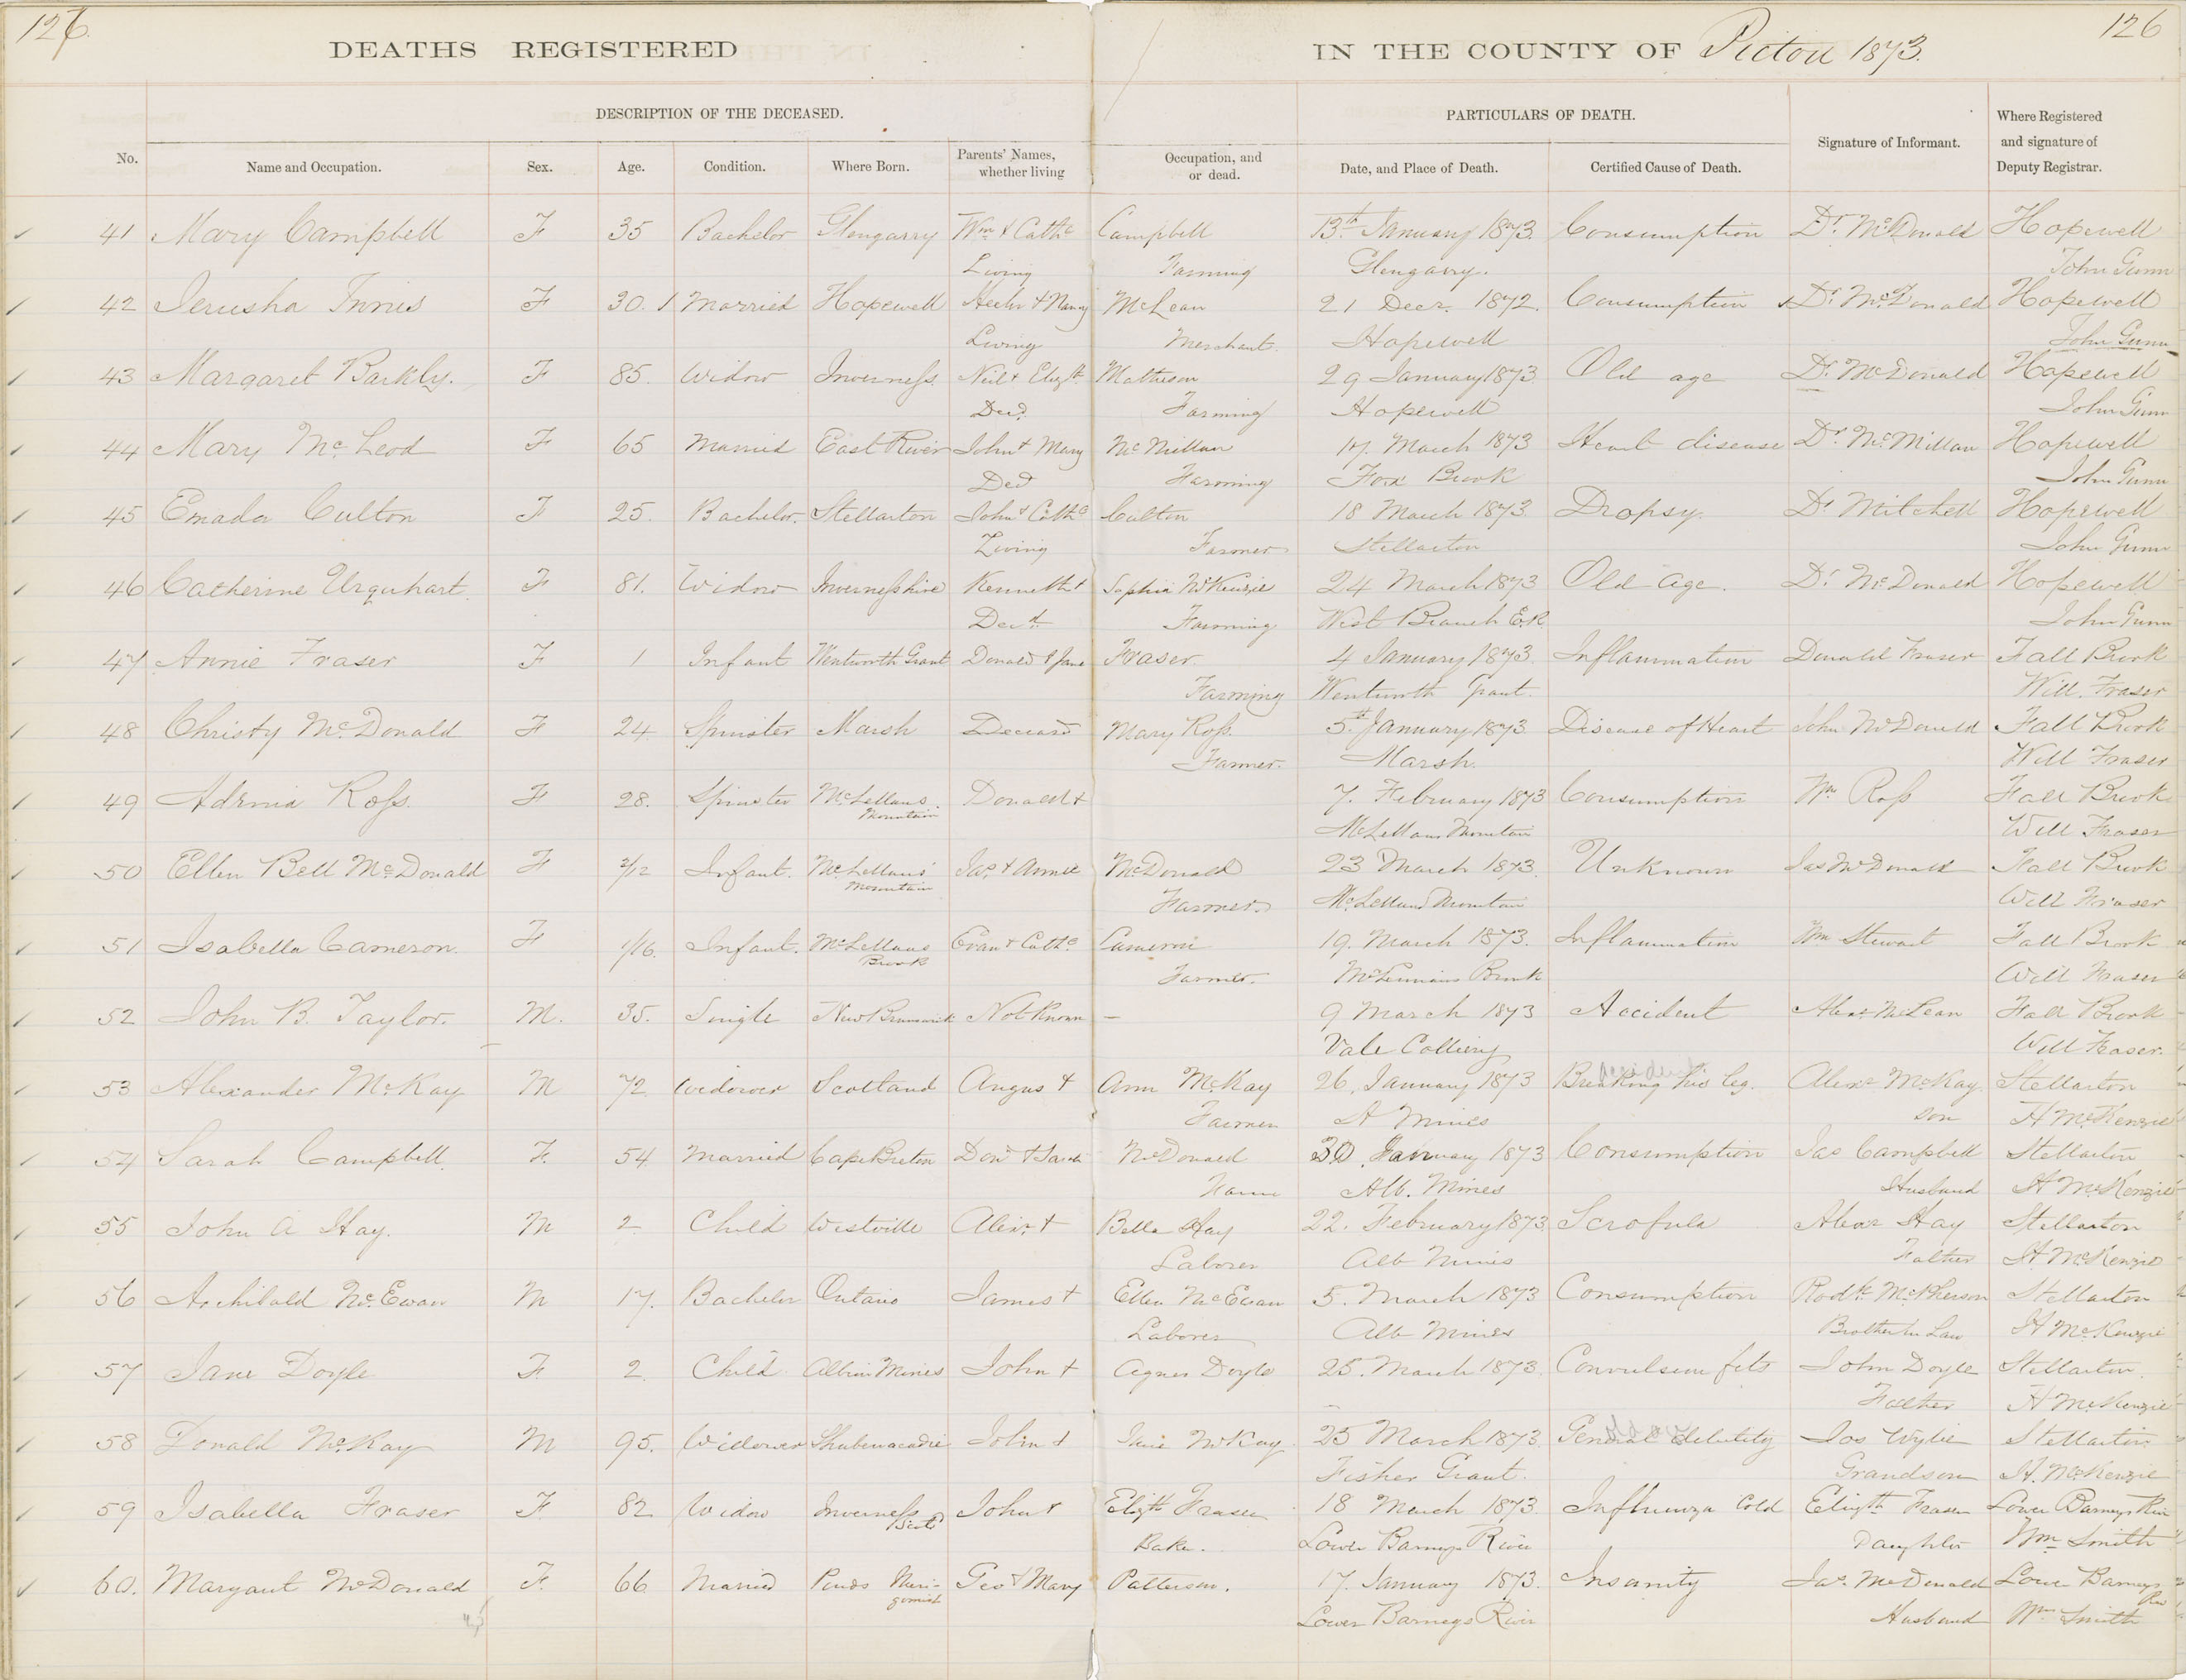 126. 126
DEATHS REGISTERED IN THE COUNTY OF Pictou 1873.
DESCRIPTION OF THE DECEASED. PARTICULARS OF DEATH.
No. Name and Occupation. Sex. Age. Condition. Where Born. Parents' Names, whether living Occupation, and or dead. Date, and Place of Death. Certified Cause of Death. Signature of Informant. Where Registered and signature of Deputy Registrar.
41 Mary Campbell F 35 Bachelor Glengarry Wm & Cathe Campbell 13th January 1873. Consumption Dr. McDonald Hopewell
Living Farming Glengarry. John Gunn
42 Jerusha Innis F 30. Married Hopewell & Nancy McLean 21 Decr. 1872. Consumption Dr. McDonald Hopewell
Living Merchant Hopewell John Gunn
43 Margaret Barkly. F 85. Widow Inverness. Neil & Elizth Matheson 29 January 1873. Old age Dr. McDonald Hopewell
Ded. Farming Hopewell John Gunn
44 Mary McLeod F 65 Married East River John & Mary McMillan 17. March 1873 Heart disease Dr. McMillan Hopewell
Ded Farming Fox Brook John Gunn
45 Emada Culton F 25. Bachelor. Stellarton John & Cathe Culton 18 March 1873. Dropsy. Dr Mitchell Hopewell
Living Farmer Stellarton John Gunn
46 Catherine Urquhart. F 81. Widow Invernesshire Kenneth & Sophia McKenzie 24 March 1873 Old Age. Dr McDonald Hopewell
Decd. Farming West Branch E.R. John Gunn
47 Annie Fraser F 1 Infant Wentworth Grant Donald & Jane Fraser. 4 January 1873. Inflammation Donald Fraser Fall Brook
Farming Wentworth Grant. Will. Fraser
48 Christy McDonald F 24. Spinster Marsh Deceasd Mary Ross. 5th January 1873. Disease of Heart John McDonald Fall Brook
Farmer. Marsh. Will Fraser
49 Ross. F 28. Spinster McLellans Mountain Donald & 7. February 1873 Consumption Wm Ross Fall Brook
McLellans Mountain Will Fraser
50 Ellen Bell McDonald F 2/12 Infant. McLellans' Mountain Jas. & Annie McDonald 23 March 1873. Unknown Jas McDonald Fall Brook
Farmer. McLellans Mountain Will Fraser
51 Isabella Cameron. F 1/16. Infant. McLellans Brook Evan & Cathe Cameron 19. March 1873. Inflammation Wm Stewart Fall Brook
Farmer. Brook Will Fraser
52 John B. Taylor. M. 35. Single New Brunswick Not Known — 9 March 1873 Accident Alexr McLean Fall Brook
Vale Colliery Will Fraser.
53 Alexander McKay M 72. Widower Scotland Angus & Ann McKay 26. January 1873 Breaking his leg. Accident Alexr McKay. Stellarton
Farmer A Mines son H McKenzie
54 Sarah Campbell. F. 54 Married Cape Breton Dond & Sarah McDonald 30. January 1873 Consumption Jas Campbell Stellarton
Farmer Alb. Mines Husband H McKenzie
55 John A Hay. M 2 Child Westville Alexr. & Bella Hay 22. February 1873. Scrofula Alexr Hay Stellarton
Laborer Alb Mines Father H McKenzie
56 Archibald McEwan M 17. Bachelor Ontario James & Ellen McEwan 5. March 1873 Consumption Rodk McPherson Stellarton
Laborer Alb Mines Brother In Law H McKenzie
57 Jane Doyle F 2. Child Albion Mines John & Agnes Doyle 25. March 1873. Convulsion fits John Doyle Stellarton.
Father H McKenzie
58 Donald McKay M 95. Widower Shubenacadie John & Jane McKay. 25 March 1873. General debility Jos Wylie Stellarton
Fisher Grant. Grandson H. McKenzie
59 Isabella Fraser F. 82 Widow Inverness Scotd John & Elizth Fraser 18 March 1873. Influenza Cold Elizth Fraser Lower Barneys River
Lower Barneys River Daughter Wm Smith
60. Margaret McDonald F. 66 Married Ponds Merigomish Geo & Mary Patterson. 17. January 1873. Insanity Jas. McDonald Lower Barneys River
Lower Barneys River Husband Wm Smith